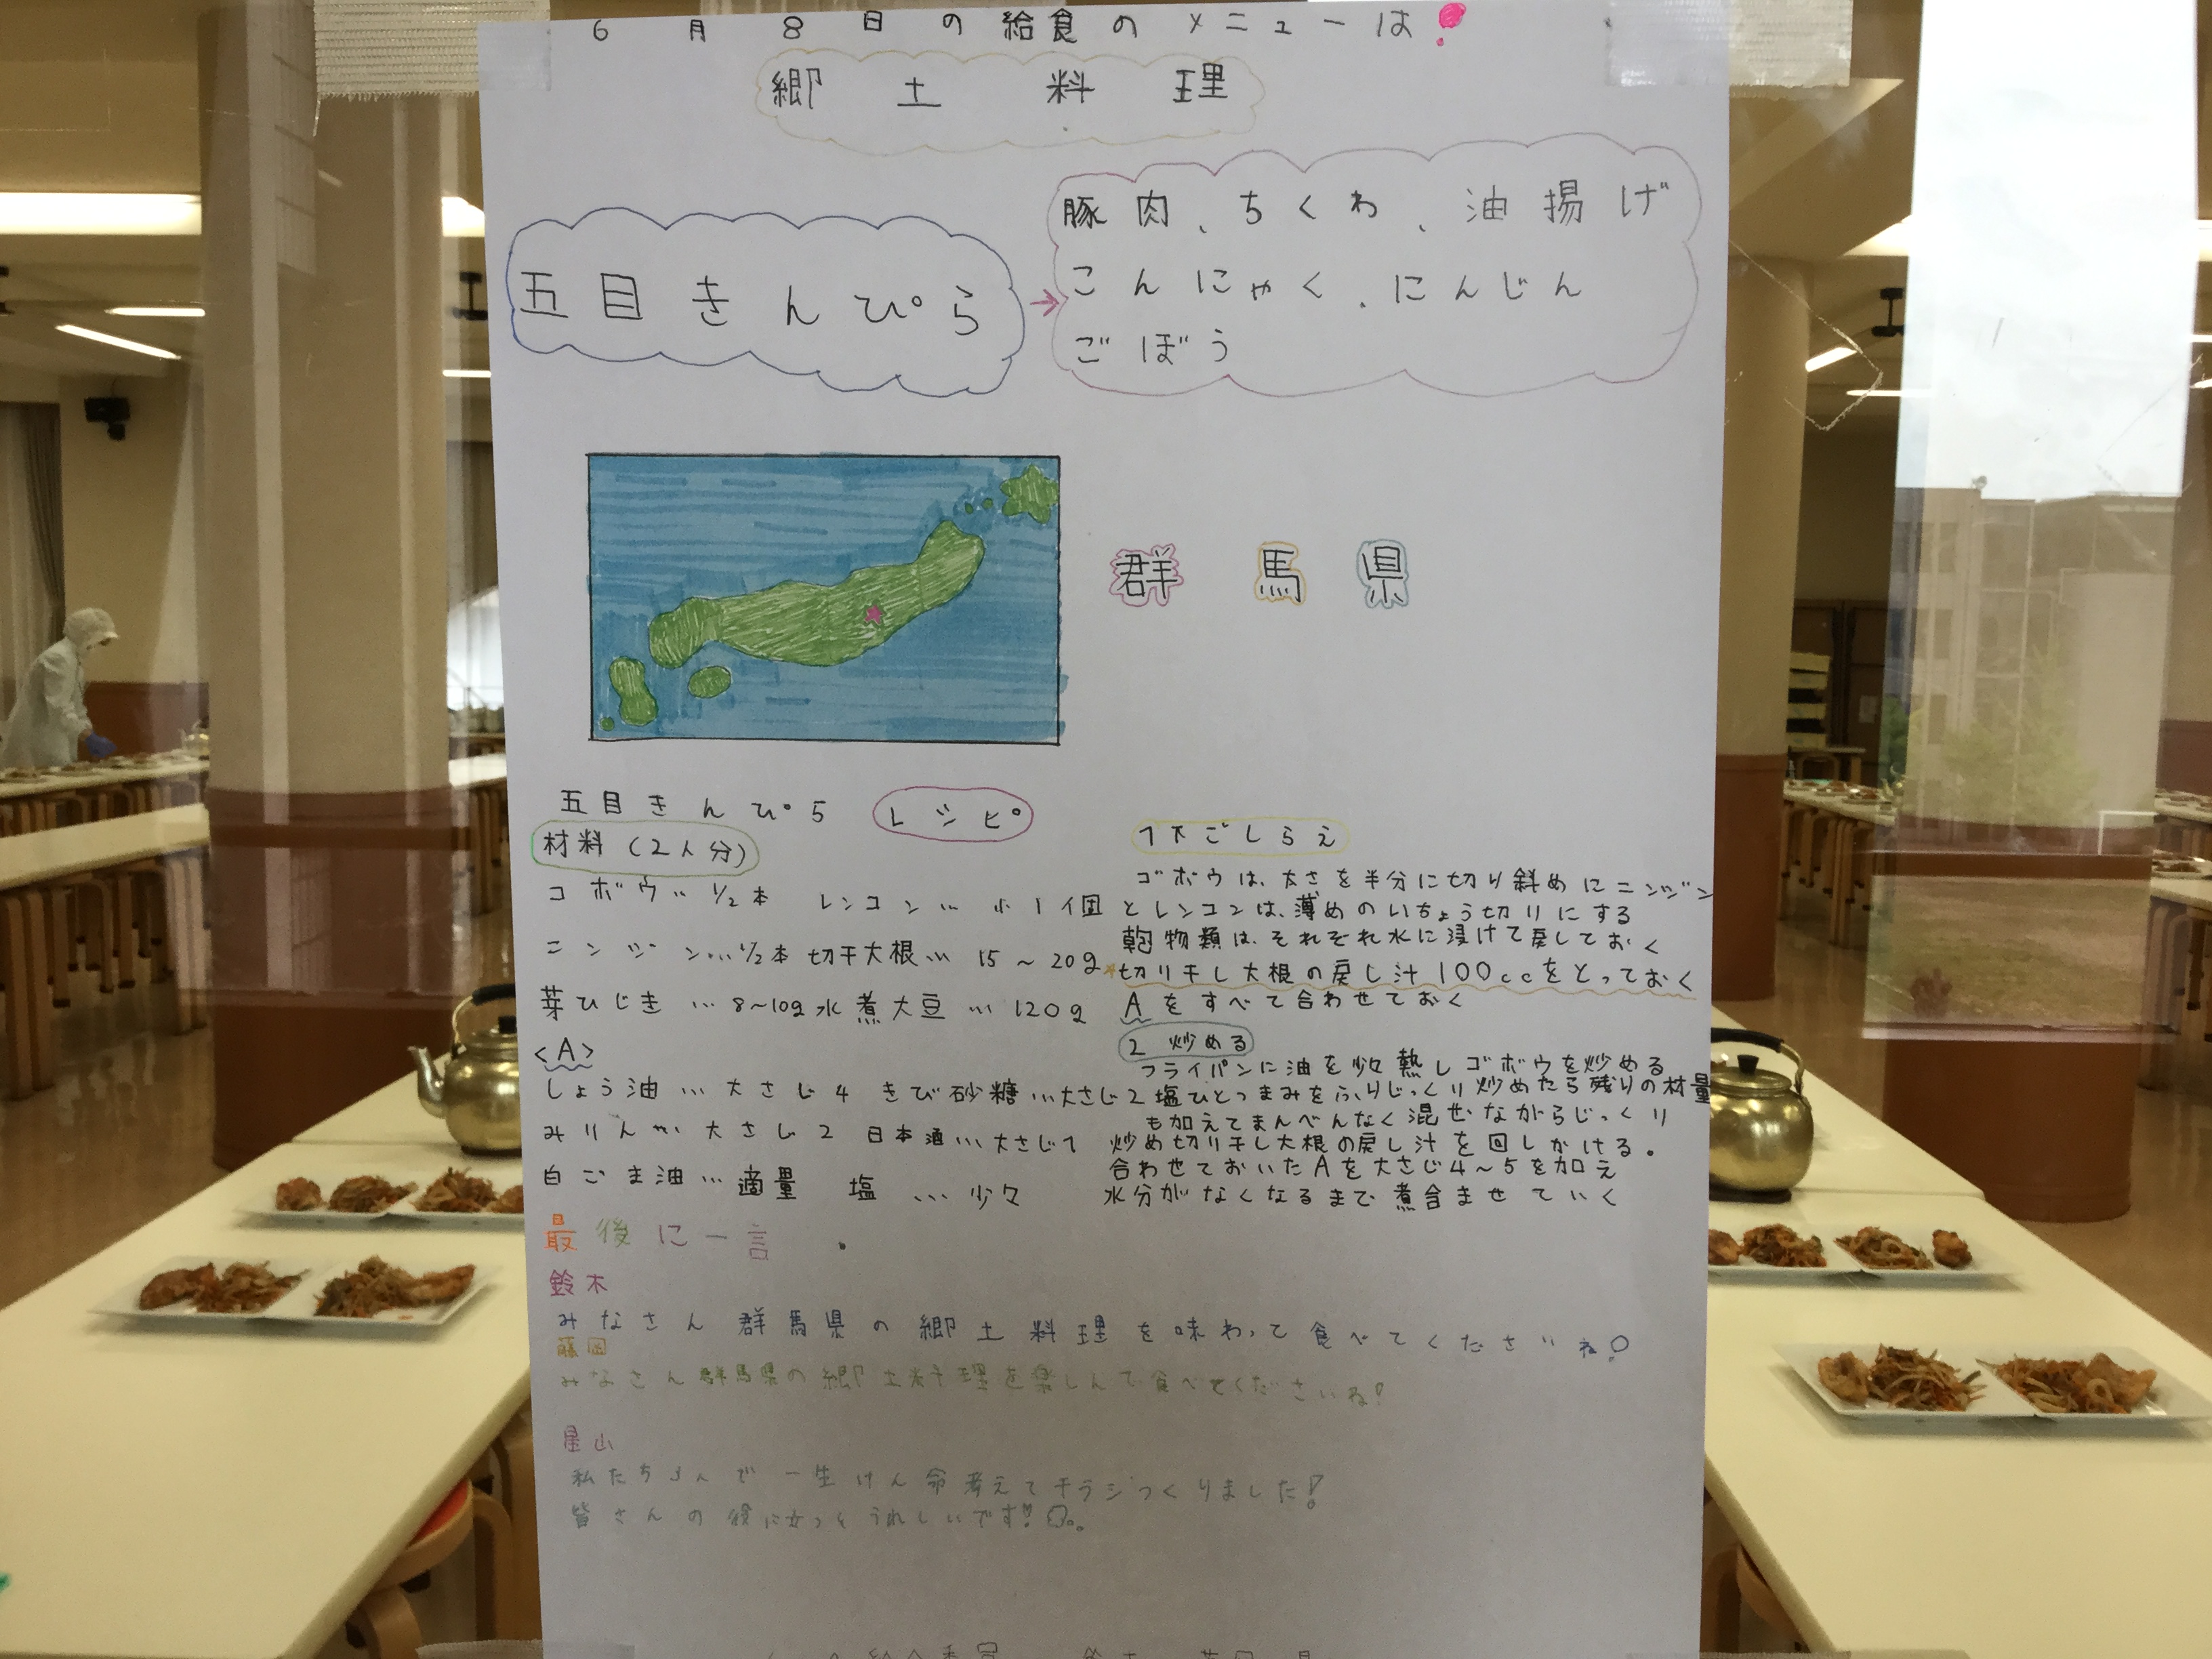 6月8日の給食のメニューは!
郷土料理
五目きんぴら
→
豚肉、ちくわ、油揚げ
こんにゃく、にんじん
ごぼう
群馬県
五目きんぴら レシピ
材料(2人分)
ゴボウ… 1/2本 レンコン… 小1個
ニンジン… 1/2本 切干大根… 15~20g
芽ひじき…8~10g 水煮大豆…120g
<A>
しょう油…大さじ4 きび砂糖…大さじ2
みりん…大さじ2 日本酒…大さじ1
白ごま油…適量 塩…少々
1 下ごしらえ
ゴボウは、太さを半分に切り斜めにニンジン
とレンコンは、薄めのいちょう切りにする
乾物類は、それぞれ水に浸けて戻しておく
*切り干し大根の戻し汁100ccをとっておく
Aをすべて合わせておく
2 炒める
フライパンに油を少々熱しゴボウを炒める
塩ひとつまみをふりじっくり炒めたら残りの材量
も加えてまんべんなく混ぜながらじっくり
炒め切り干し大根の戻し汁を回しかける。
合わせておいたAを大さじ4~5を加え
水分がなくなるまで煮含ませていく
最後に一言.
鈴木
みなさん群馬県の郷土料理を味わって食べてくださいね!
藤岡
みなさん群馬県の郷土料理を楽しんで食べてくださいね!
星山
私たち3人で一生けん命考えてチラシつくりました!
皆さんの役に立つとうれしいです!